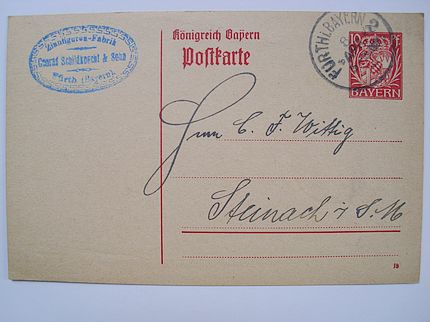 Zinnfiguren-Fabrik
Conrad Schildknecht & Sohn
Fürth (Bayern).
Königreich Bayern
Postkarte
FÜRTH I. BAYERN 2
10 PF
BAYERN
Herrn C. F. Wittig
Steinach i. S. M
19